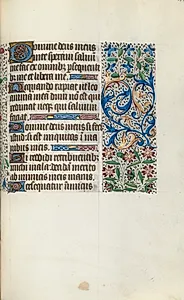 Domine deus meus
in te speravi salvum
me fac ex omnibus persequenti
bus me et libera me.
Nequando rapiat ut leo
animam meam dum non est qui
redimat neque qui salvum
faciat.
Domine deus meus si feci
istud si est iniquitas in ma
nibus meis.
Si reddidi retribuentibus
michi mala decidam merito
ab inimicis meis inanis.
Persequatur inimicus